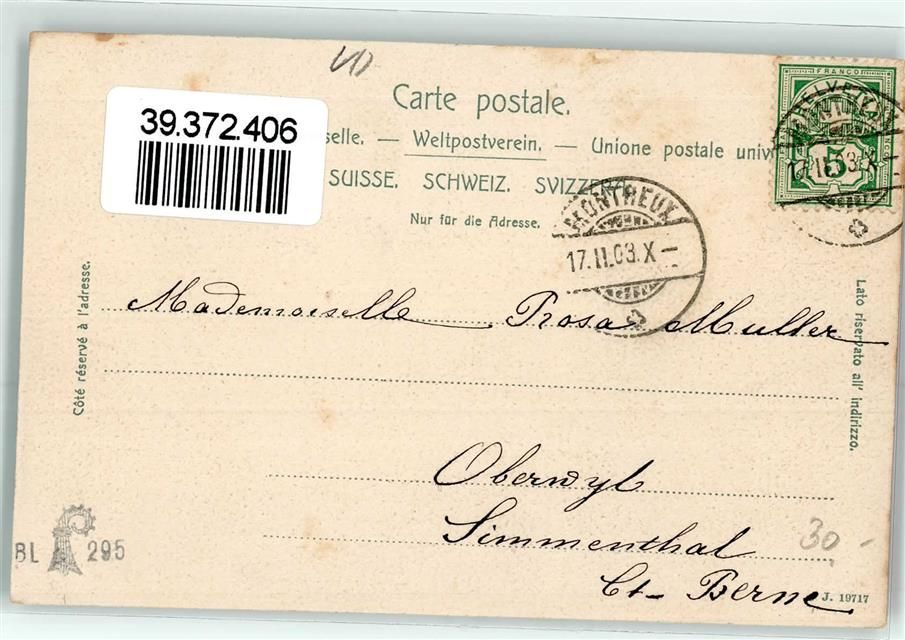 Carte postale.
39.372.406
selle. — Weltpostverein. — Unione postale univ
SUISSE. SCHWEIZ. SVIZZERA.
Nur für die Adresse.
FRANCO
HELVETIA
5
MONTREUX
17.II.03.X
MONTREUX
17.II.03.X
Côté réservé à l'adresse.
Lato riservato all' indirizzo.
Mademoiselle Rosa Muller
Oberwyl
Simmenthal
Ct- Berne
30 -
BL 295
J. 19717